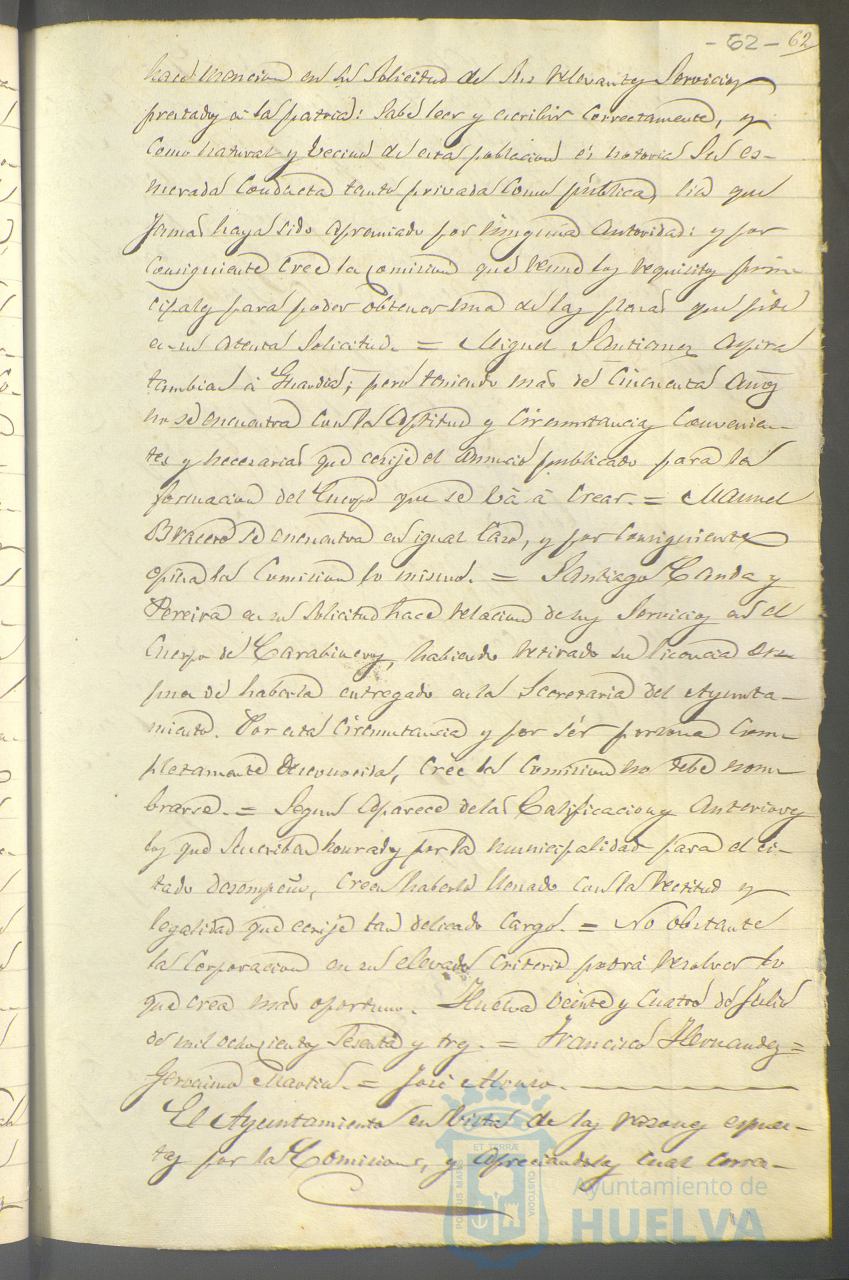 - 62 - 62
hace mencion en su solicitud de sus relevantes Servicios
prestados á la patria: sabe leer y escribir correctamente, y
como natural y vecino de esta poblacion és notoria su es-
merada conducta tanto privada como pública, sin que
jamas haya sido apremiado por ninguna autoridad: y por
consiguiente cree la comision que reune los requisitos prin-
cipales para poder obtener una de las plazas que pide
en su atenta solicitud. = Miguel Santiago aspira
tambien á Guardia; pero teniendo mas de cincuenta años
no se encuentra con la aptitud y circunstancias convenien-
tes y necesarias que ecsije el anuncio publicado para la
formacion del Cuerpo que se vá á crear. = Manuel
Bracero se encuentra en igual caso, y por consiguiente
opina la Comision lo mismo. = Santiago Canda y
Pereira en su solicitud hace relacion de sus Servicios en el
Cuerpo de Carabineros, habiendo retirado su licencia des-
pues de haberla entregado en la Secretaria del Ayunta-
miento. Por esta circunstancia y por sér persona com-
pletamente desconocida, crée la Comision no debe nom-
brarse. = Segun aparece de las Calificaciones anteriores
los que suscriben honrados por la municipalidad para el ci-
tado desempeño, creen haberlo llenado con la rectitud y
legalidad que ecsije tan delicado cargo. = No obstante
la Corporacion en su elevado criterio podrá resolver lo
que crea mas oportuno. Huelva veinte y cuatro de Julio
de mil ochocientos sesenta y tres. = Francisco Hernandez =
Geronimo Martin. = José Alonso.
El Ayuntamiento en vista de las razones espues-
tas por la Comision, y apreciandolas cual corres-
PORTUS MARIS ET TERRAE CUSTODIA
Ayuntamiento de
HUELVA